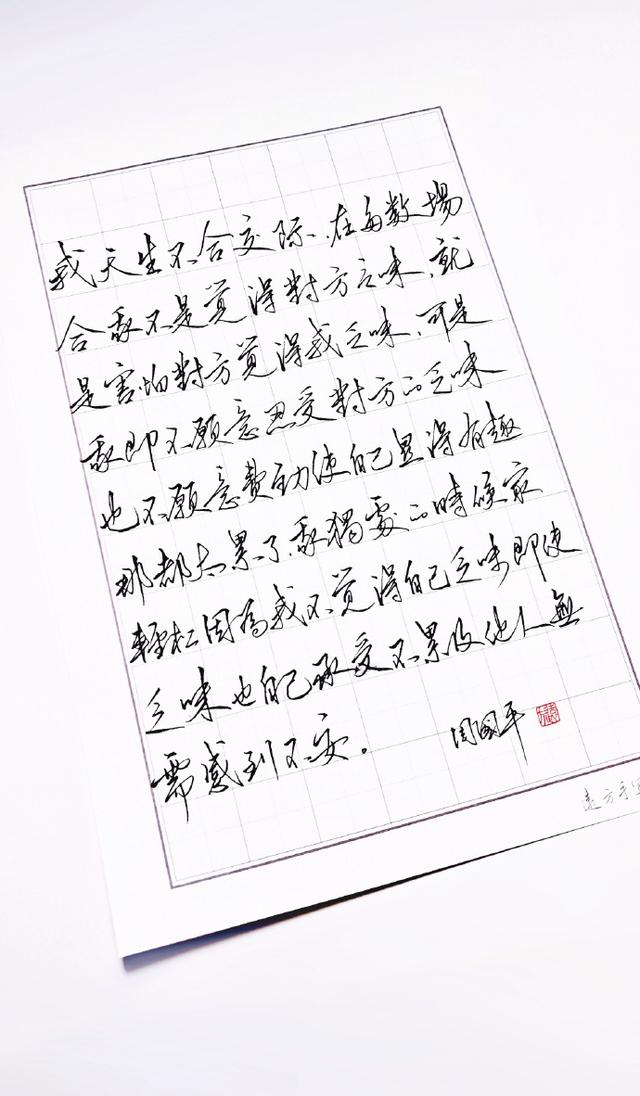 我天生不合交际、在多数場
合我不是觉得對方乏味、就
是害怕對方觉得我乏味、可是
我即不願意忍受對方的乏味
也不願意费劲使自己显得有趣
那都太累了、我獨處的時候最
輕松因為我不觉得自己乏味即使
乏味也自己承受不累及他人無
需感到不安。
周國平
遠方手写